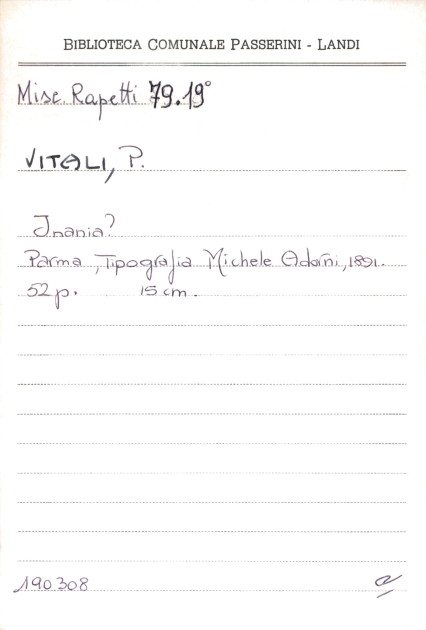 BIBLIOTECA COMUNALE PASSERINI - LANDI
Misc. Rapetti 79.19°
VITALI, P.
Inania?
Parma, Tipografia Michele Adorni, 1891.
52 p. 15 cm.
190308